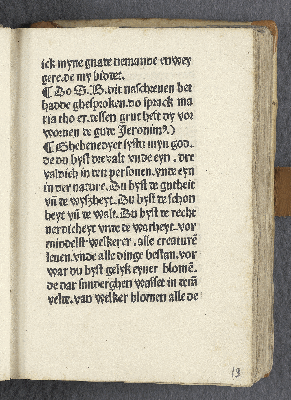 ick myne gnade nemande enwey
gere. de my biddet.
¶ Do S. B. dit naschreuen bet
hadde ghesproken. do sprack ma
ria tho er. dessen grut heft dy vor
woruen de gude Jeronimꝰ.)
¶ Ghebenedyet systu myn god.
de du byst dreualt vnde eyn. dre
valdich in den personen. vnde eyn
in der nature. Du byst de gutheit
vñ de wyszheyt. Du byst de schon
heyt vñ de walt. Du byst de recht
uerdicheyt vnde de warheyt. vor
middelst welkerer. alle creaturē
leuen. vnde alle dinge bestan. vor
war du byst gelyk eyner blomē.
de dar sunderghen wasset in dem
velde. van welker blomen alle de
13